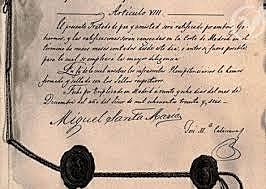 Artículo VIII.
El presente Tratado de paz y amistad será ratificado por ambos Go-
biernos, y las ratificaciones serán canjeadas en la Corte de Madrid en el
termino de nueve meses contados desde este dia, o antes si fuere posible,
para lo cual se empleará la mayor diligencia.
En fé de lo cual nosotros los infrascritos Plenipotenciarios lo hemos
firmado y sellado con los sellos respectivos.
Fecho por triplicado en Madrid a veinte y ocho dias del mes de
Diciembre del año del Señor de mil ochocientos treinta y seis.
Miguel Santa Maria
José M.ª Calatrava